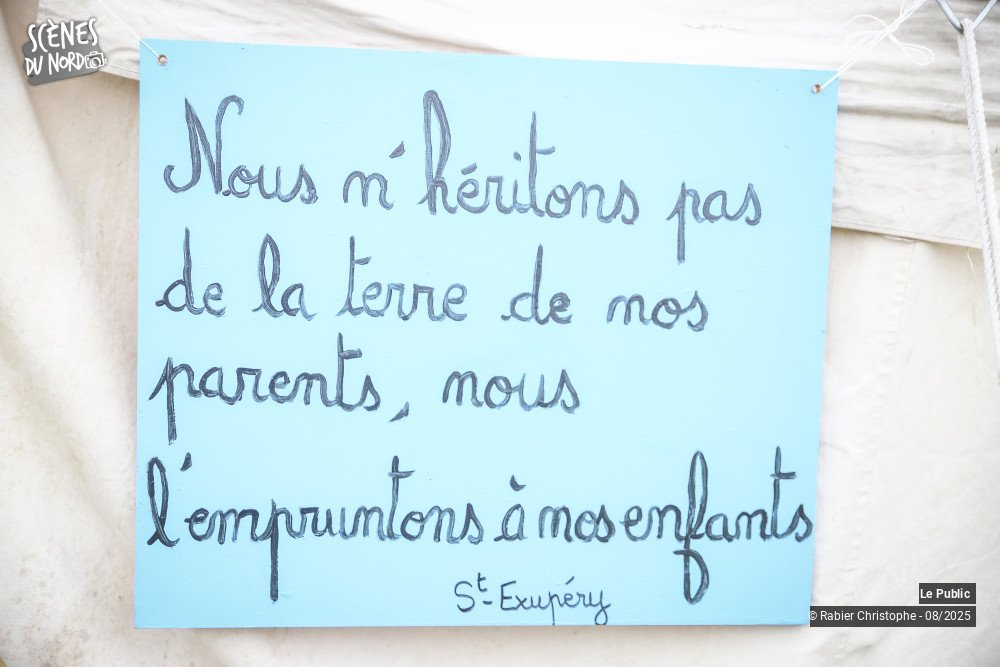 SCÈNES
DU NORD
Nous n'héritons pas
de la terre de nos
parents, nous
l'empruntons à nos enfants
St-Exupéry
Le Public
© Rabier Christophe - 08/2025